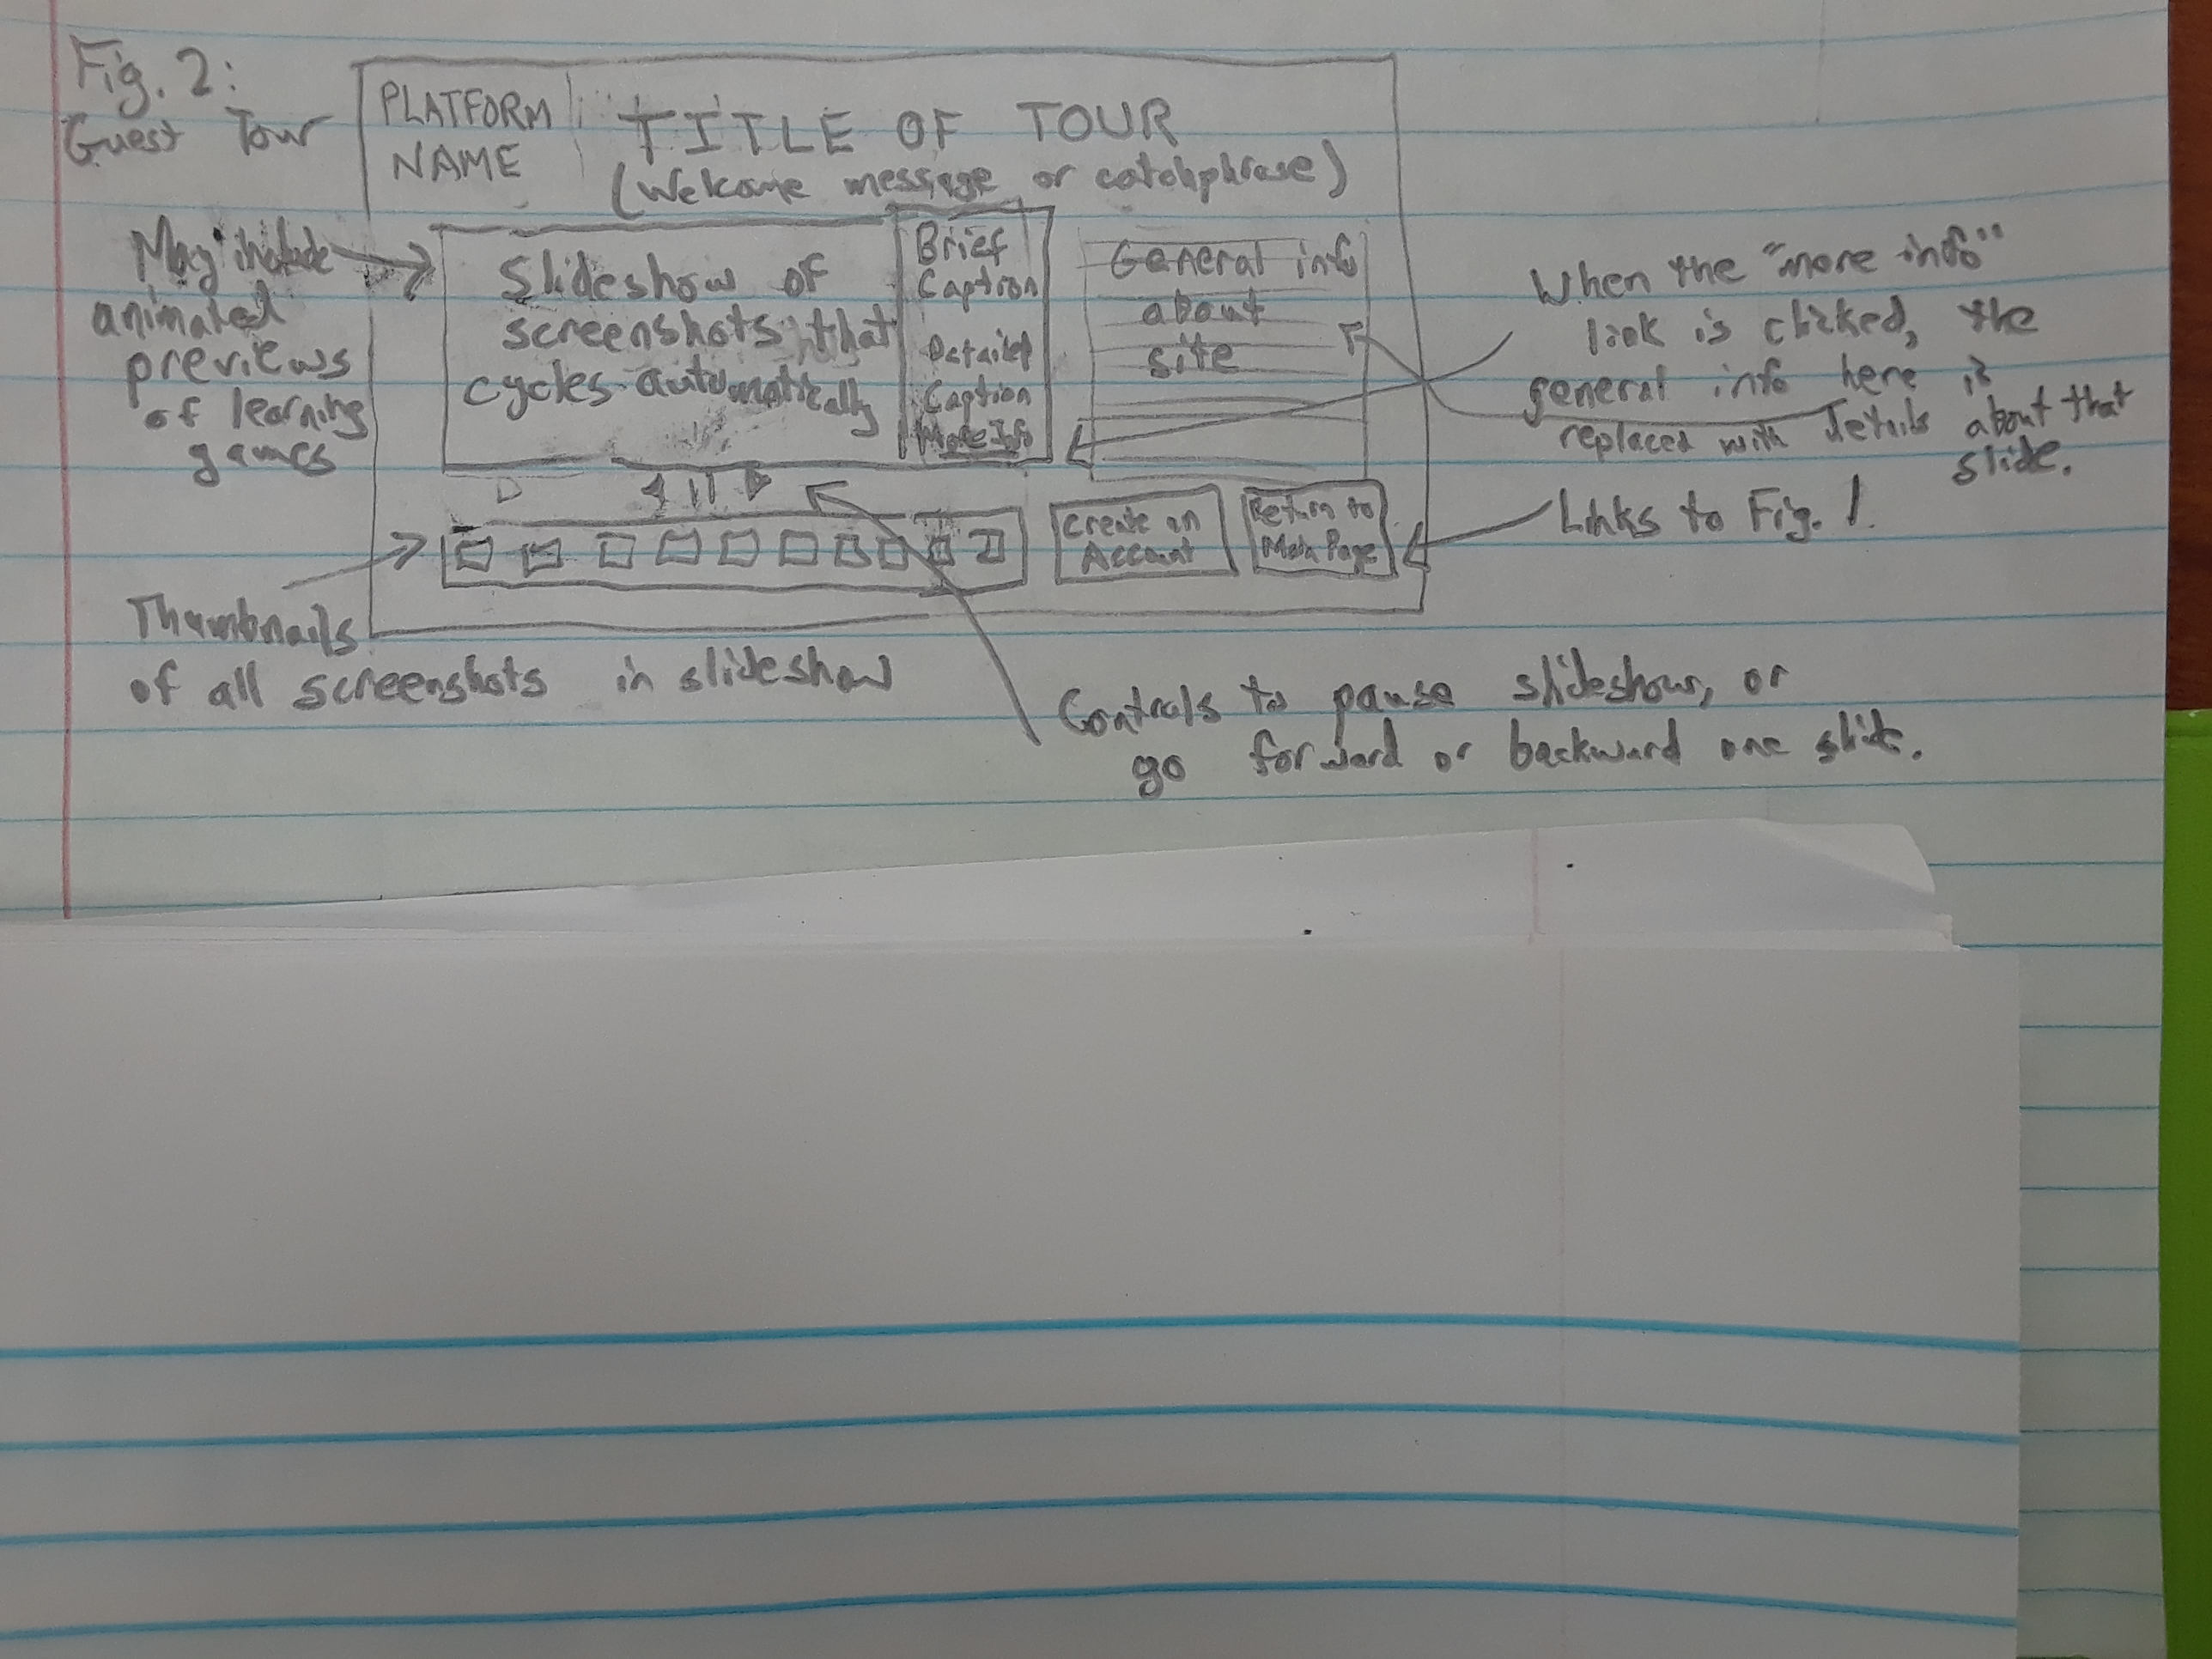 Fig. 2:
Guest Tour
PLATFORM
NAME
TITLE OF TOUR
(Welcome message or catchphrase)
May include
animated
previews
of learning
games
Slideshow of
screenshots that
cycles automatically
Brief
Caption
Detailed
Caption
More Info
General info
about
site
When the "more info"
link is clicked, the
general info here is
replaced with details about that
slide.
Create an
Account
Return to
Main Page
Links to Fig. 1
Thumbnails
of all screenshots in slideshow
Controls to pause slideshow, or
go forward or backward one slide.